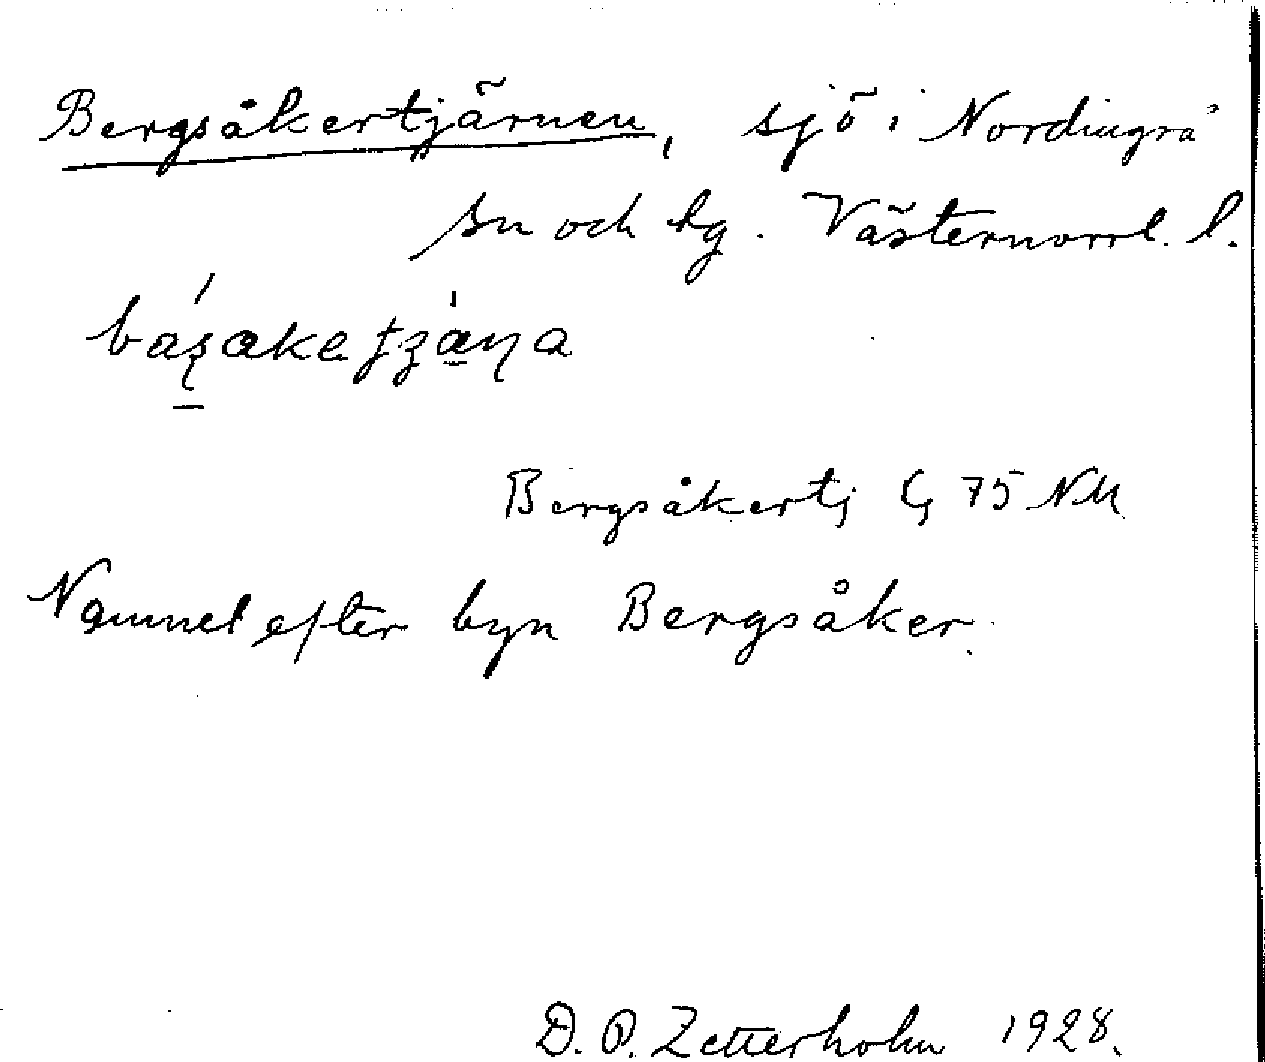 Bergsåkertjärnen, sjö i Nordingrå
sn och tg. Västernorrl. l.
Bergsåkertj G 75 NM
Namnet efter byn Bergsåker.
D. O. Zetterholm 1928.